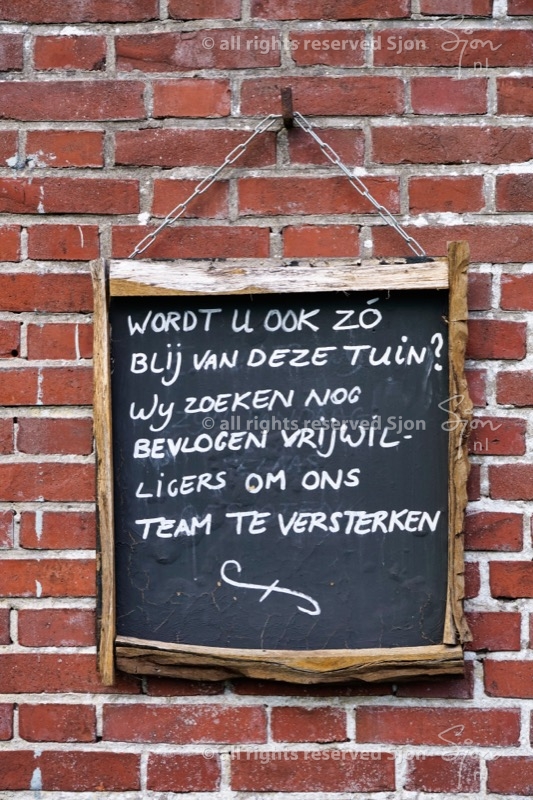 © all rights reserved Sjon
Sjon.nl
WORDT U OOK ZÓ
BLIJ VAN DEZE TUIN?
WY ZOEKEN NOG
© all rights reserved Sjon
Sjon.nl
BEVLOGEN VRIJWIL-
LIGERS OM ONS
TEAM TE VERSTERKEN
© all rights reserved Sjon
Sjon.nl